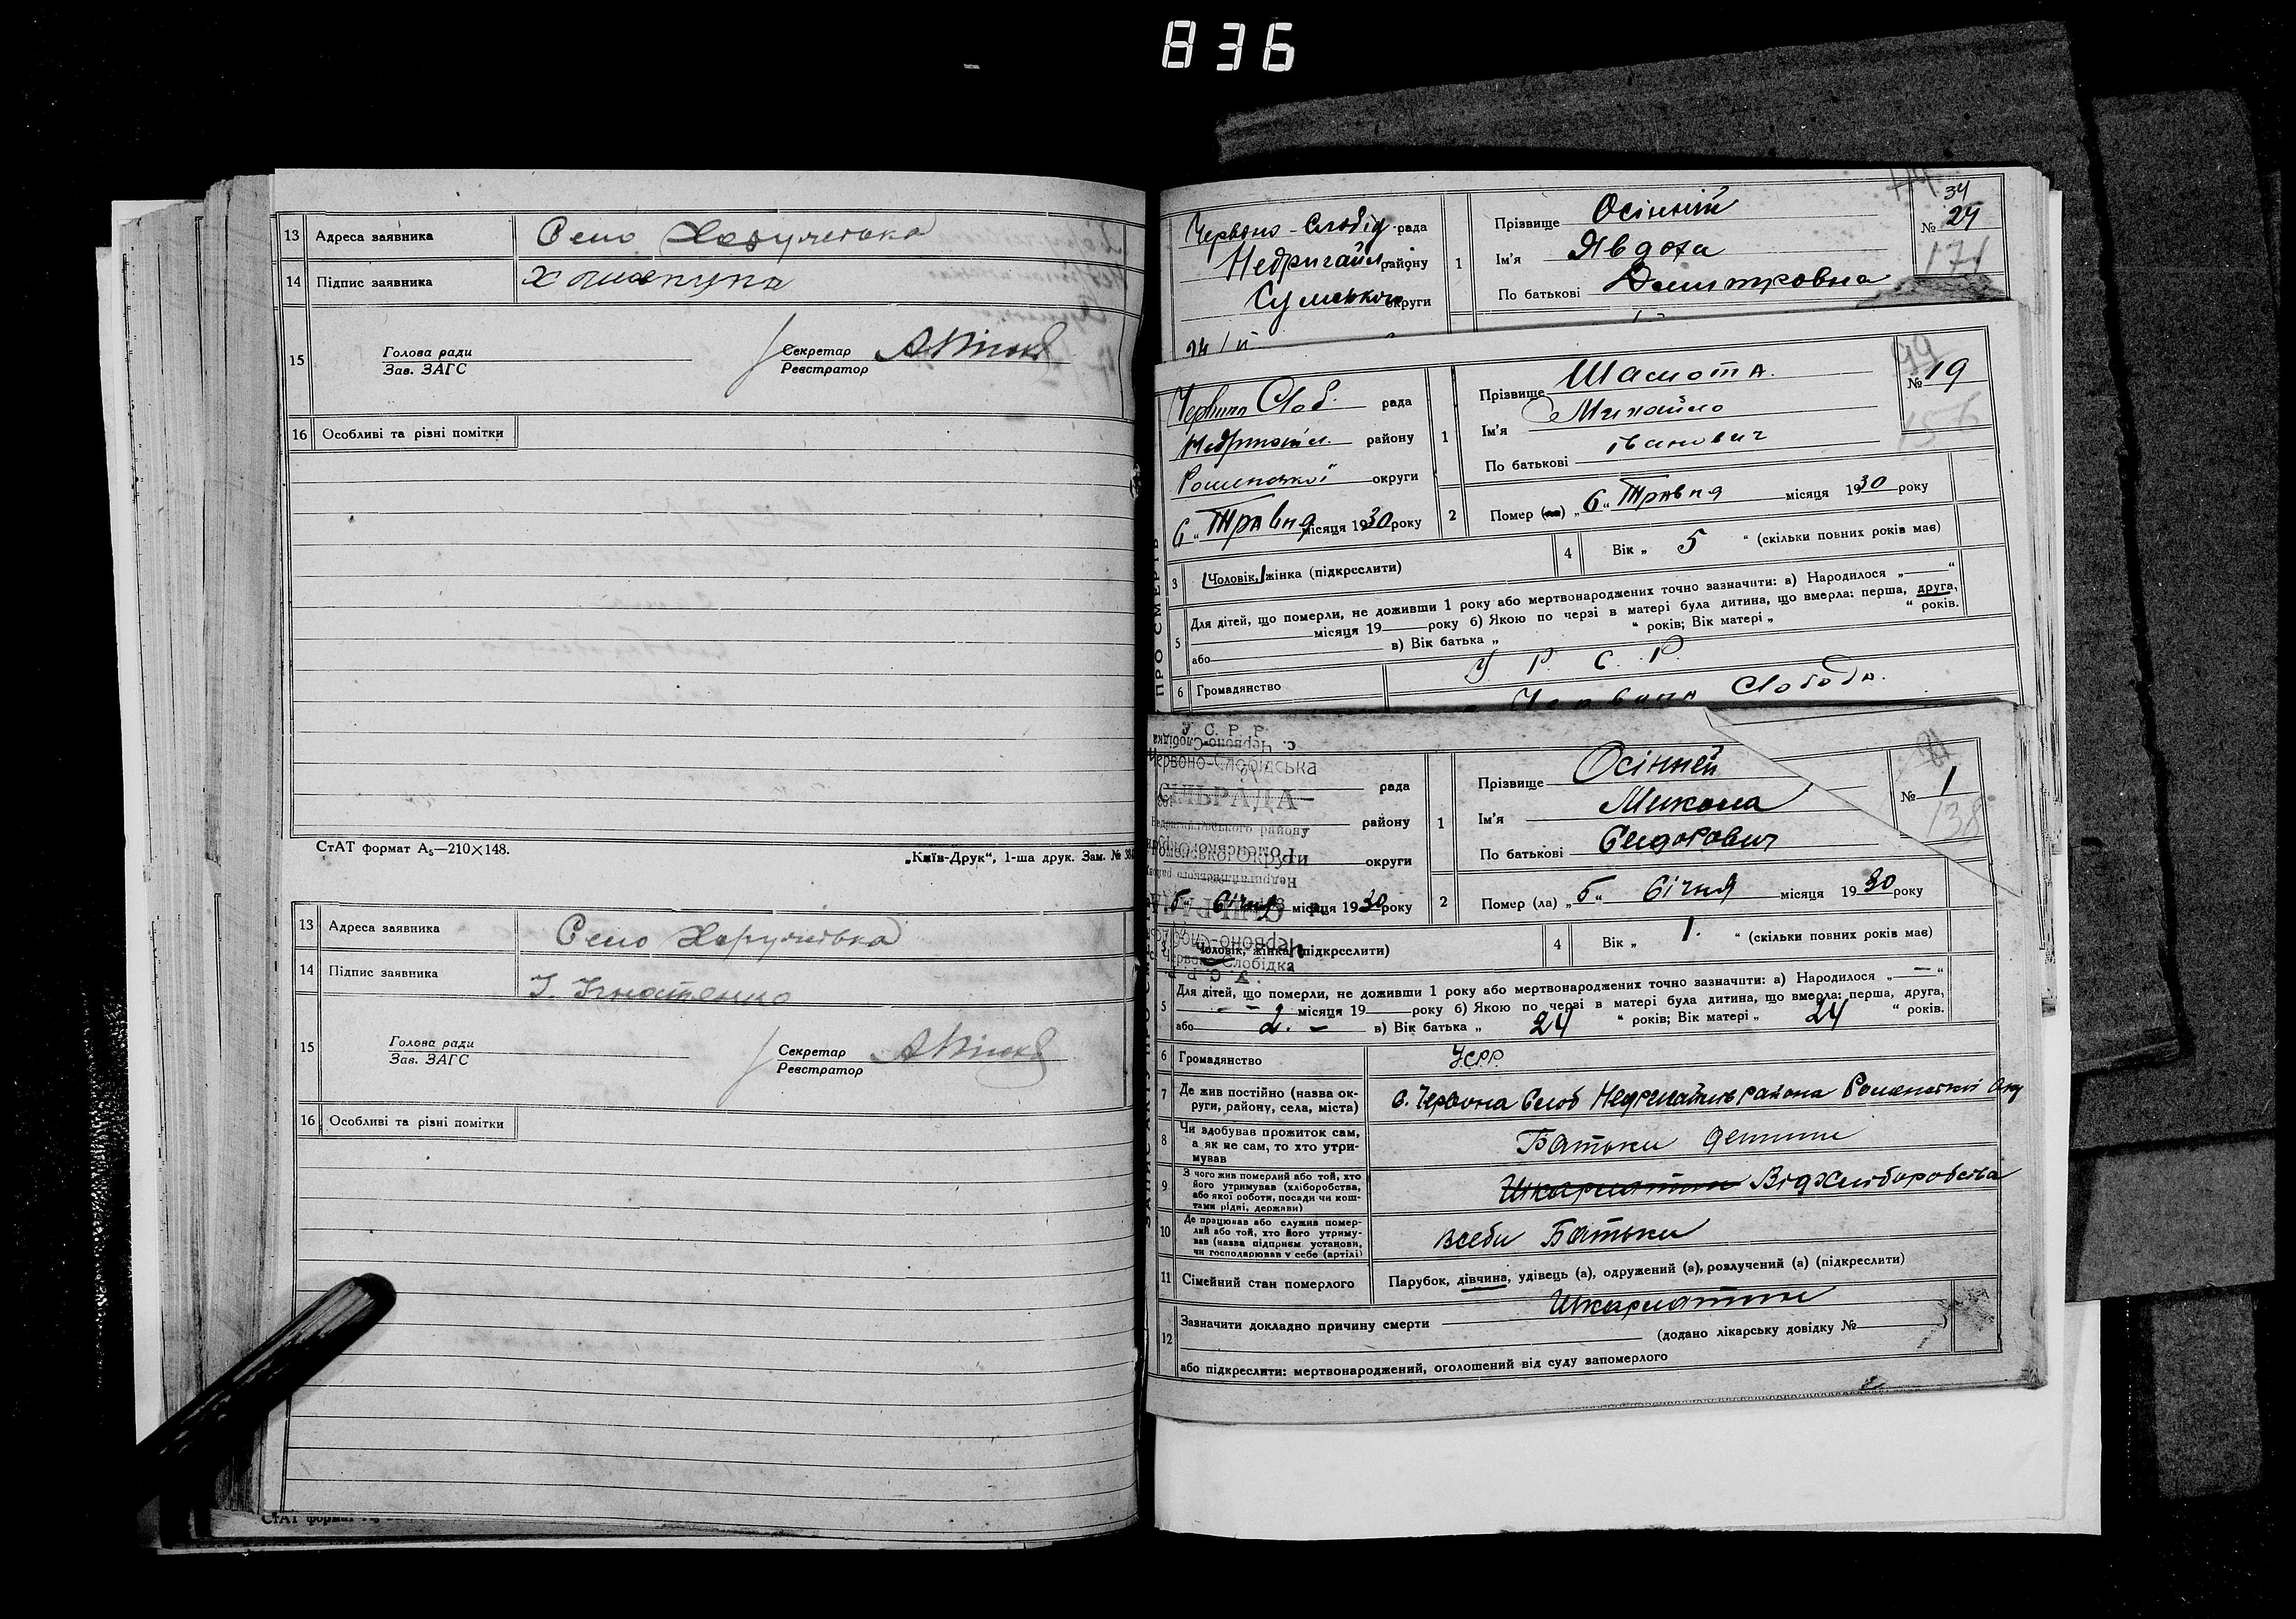 836
13 Адреса заявника Село Хоружевка
14 Підпис заявника
15 Голова ради
Зав. ЗАГС
Секретар
Реєстратор
16 Особливі та різні помітки
СтАТ формат А₅—210×148.
„Київ-Друк“, 1-ша друк. Зам. №
13 Адреса заявника Село Хоружевка
14 Підпис заявника І. Ігнатенко
15 Голова ради
Зав. ЗАГС
Секретар
Реєстратор
16 Особливі та різні помітки
СтАТ формат
Червоно-Слобід. рада
Недригайл. району
Сумської округи
1 Прізвище Осінній
Ім'я Явдоха
По батькові Дмитровна
34
№ 24
171
Червоно Слоб. рада
Недригайл. району
Роменської округи
6 „ Травня місяця 1930 року
1 Прізвище Шамота.
Ім'я Михайло
По батькові Іванович
№ 19
156
2 Помер (ла) „ 6 “ Травня місяця 1930 року
3 Чоловік, жінка (підкреслити)
4 Вік „ 5 “ (скільки повних років має)
5 Для дітей, що померли, не доживши 1 року або мертвонароджених точно зазначити: а) Народилося „ “
місяця 19 року б) Якою по черзі в матері була дитина, що вмерла: перша, друга,
або в) Вік батька „ “ років; Вік матері „ “ років.
6 Громадянство У. Р. С. Р.
Червона Слобода.
ПРО СМЕРТЬ
У. С. Р. Р.
Червоно-Слобідська
СІЛЬРАДА
Недригайлівського району
Роменської Округи
рада
району
округи
6 “ Січня місяця 1930 року
1 Прізвище Осінней
Ім'я Микола
По батькові Сидорович
№ 1
138
2 Помер (ла) „ 6 “ Січня місяця 1930 року
3 Чоловік, жінка (підкреслити)
4 Вік „ 1. “ (скільки повних років має)
5 Для дітей, що померли, не доживши 1 року або мертвонароджених точно зазначити: а) Народилося „ — “
— — місяця 19 року б) Якою по черзі в матері була дитина, що вмерла: перша, друга,
або 2. — в) Вік батька „ 24 “ років; Вік матері „ 24 “ років.
6 Громадянство УСРР.
7 Де жив постійно (назва округи, району, села, міста) с. Червона Слоб Недригайлів района Роменської Окр
8 Чи здобував прожиток сам, а як не сам, то хто утримував Батьки дитини
9 З чого жив померлий або той, хто його утримував (хліборобства, або якої роботи, посади чи коштами рідні, держави) Шкарлятини Від Хліборобства
10 Де працював або служив померлий або той, хто його утримував (назва підприєм. установи, чи господарював у себе (артілі) всеби Батьки
11 Сімейний стан померлого Парубок, дівчина, удівець (а), одружений (а), розлучений (а) (підкреслити)
12 Зазначити докладно причину смерти Шкарлятини
(додано лікарську довідку № )
або підкреслити: мертвонароджений, оголошений від суду запомерлого